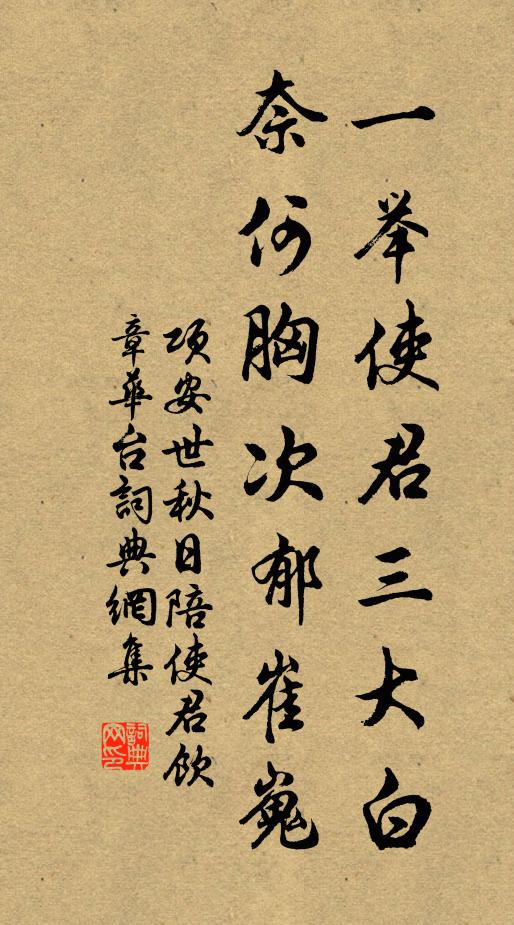 一举使君三大白
奈何胸次郁崔嵬
项安世秋日陪使君饮
章華台詞典網集
詞典网印